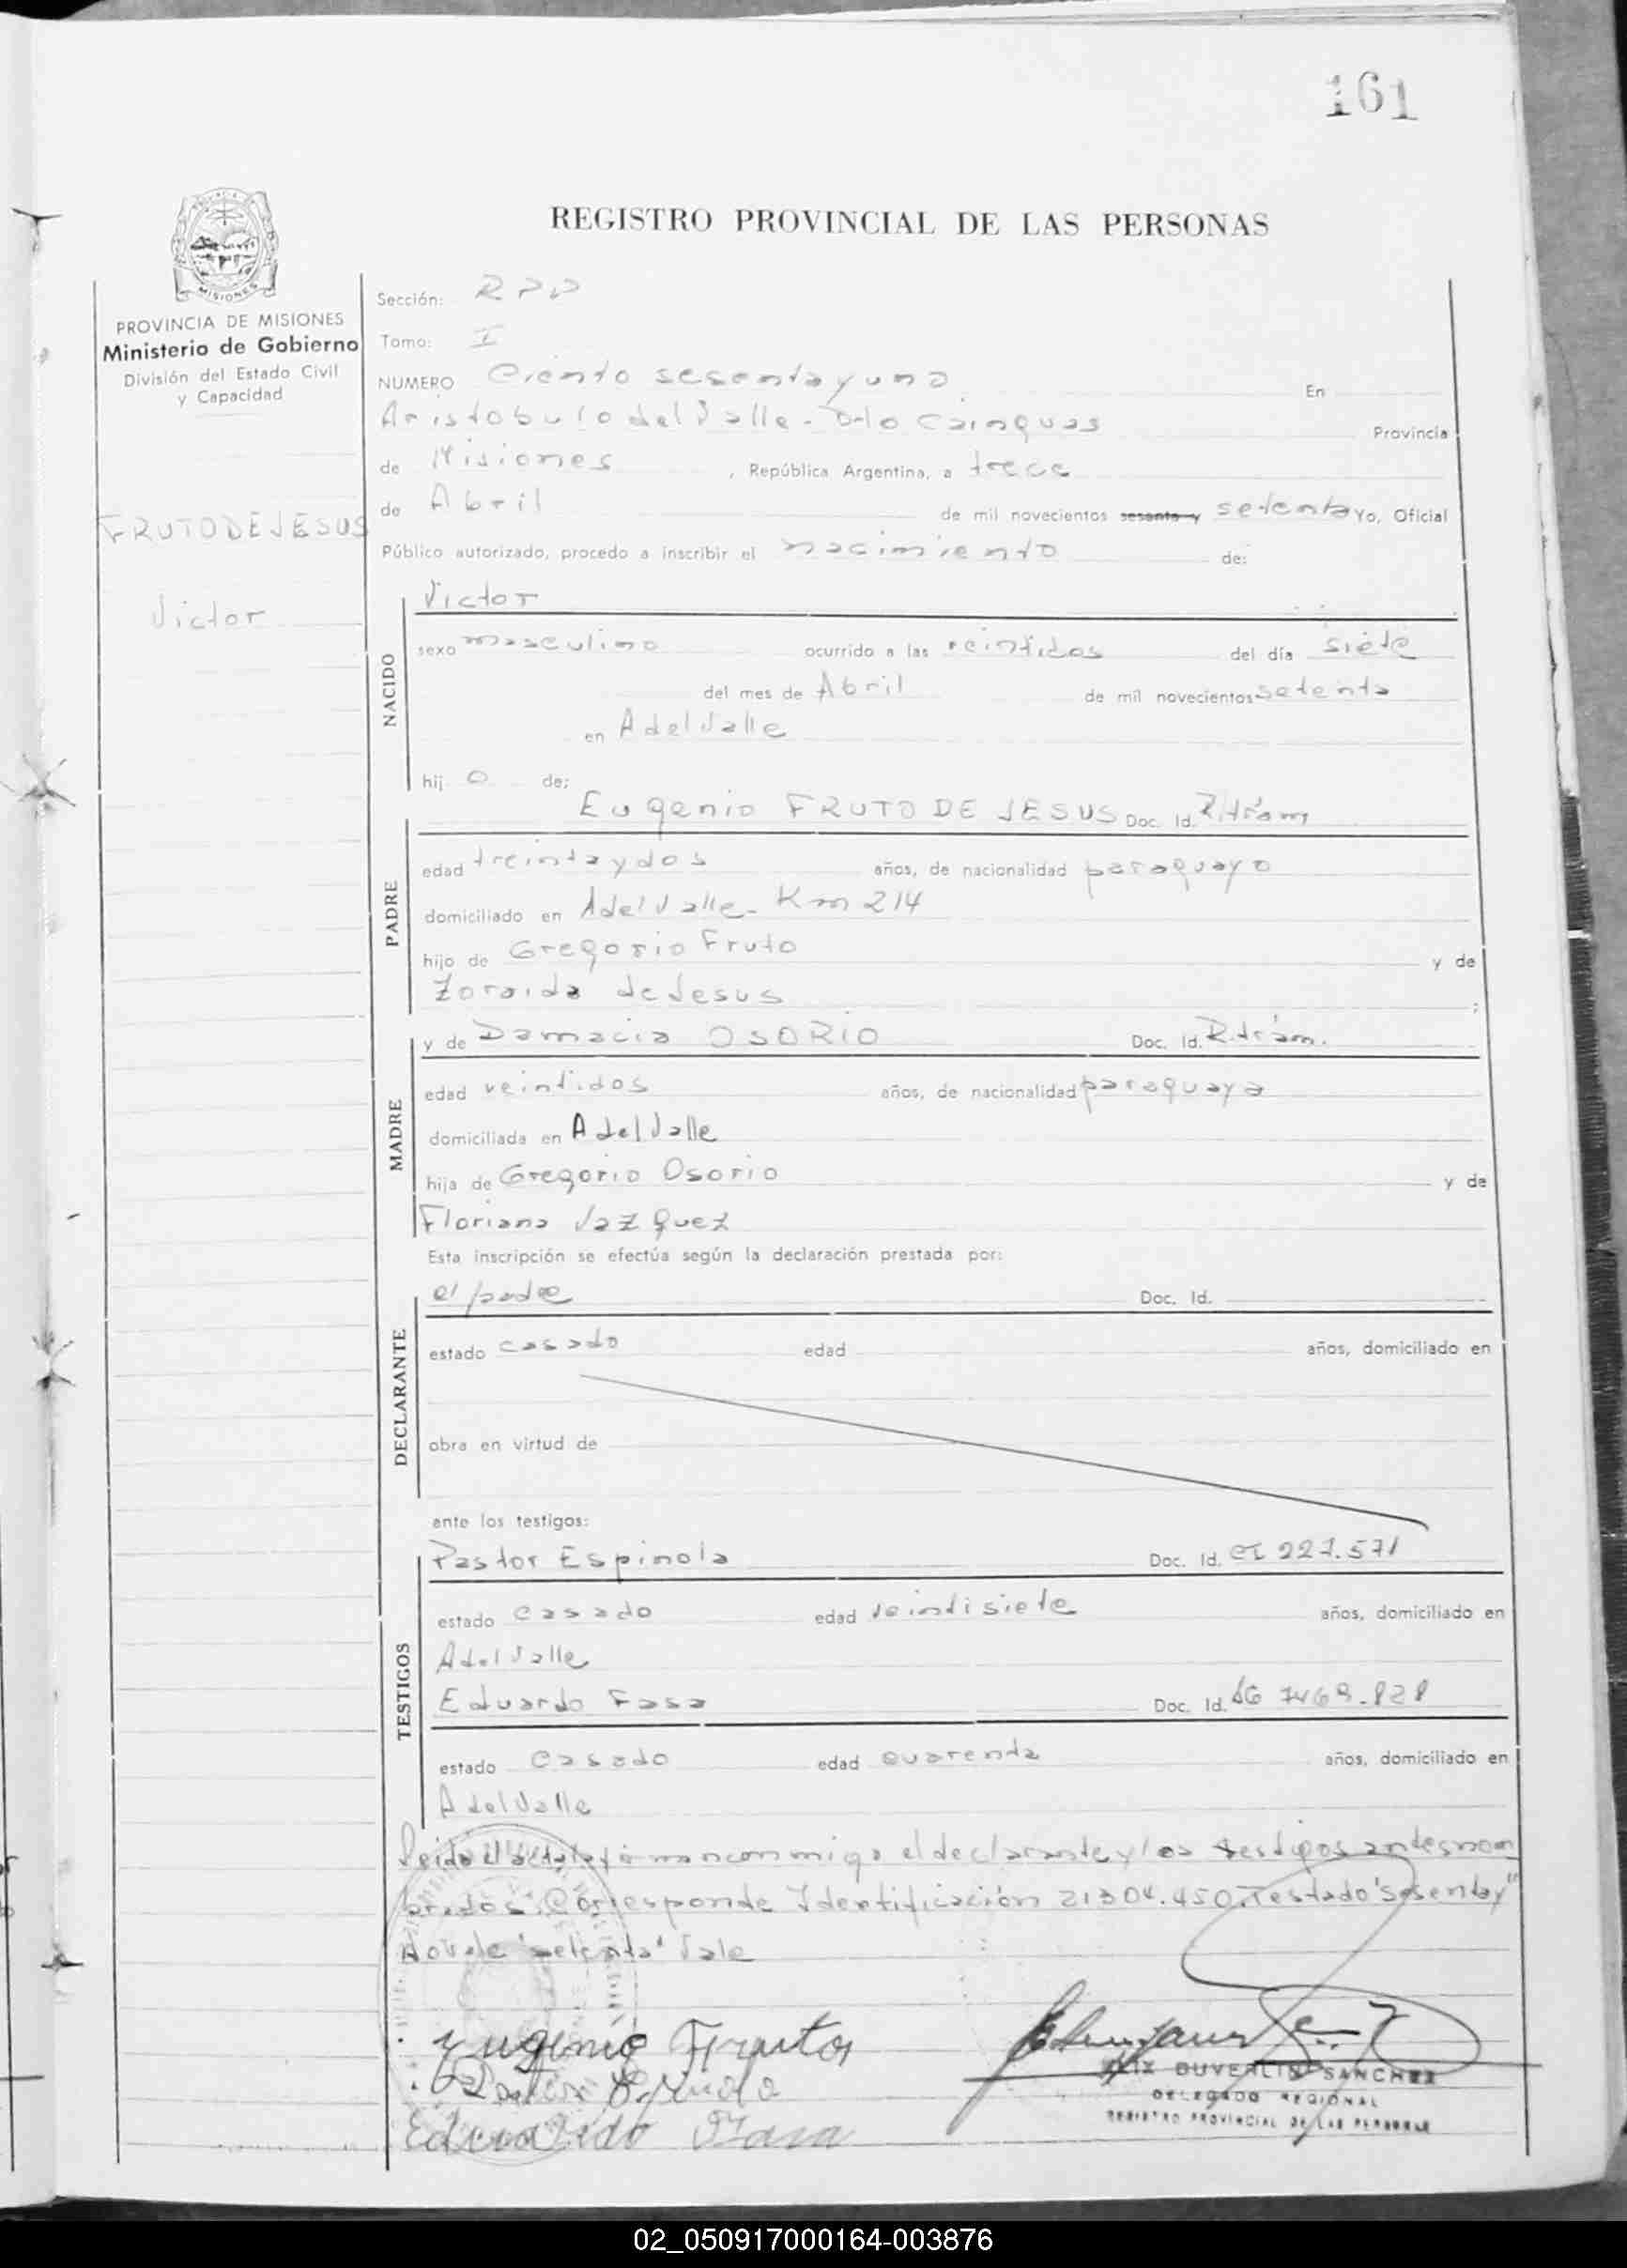 161
REGISTRO PROVINCIAL DE LAS PERSONAS
PROVINCIA DE MISIONES
Ministerio de Gobierno
División del Estado Civil
y Capacidad
FRUTO DE JESUS
Victor
Sección:
Tomo: I
NUMERO Ciento sesenta y uno En
Aristobulo del Valle - Dto Cainguas Provincia
de Misiones, República Argentina, a trece
de Abril de mil novecientos sesenta y setenta Yo, Oficial
Público autorizado, procedo a inscribir el nacimiento de:
NACIDO
Victor
sexo masculino ocurrido a las veintidos del día siete
del mes de Abril de mil novecientos setenta
en A del Valle
hij o de:
PADRE
Eugenio FRUTO DE JESUS Doc. Id. R. trám
edad treinta y dos años, de nacionalidad paraguayo
domiciliado en A del Valle - Km 214
hijo de Gregorio Fruto y de
Zoraida de Jesus ;
MADRE
y de Damacia OSORIO Doc. Id. R. trám.
edad veintidos años, de nacionalidad paraguaya
domiciliada en A del Valle
hija de Gregorio Osorio y de
Floriana Vazquez
Esta inscripción se efectúa según la declaración prestada por:
DECLARANTE
el padre Doc. Id.
estado casado edad años, domiciliado en
obra en virtud de
ante los testigos:
TESTIGOS
Pastor Espinola Doc. Id. CI 227.571
estado casado edad veintisiete años, domiciliado en
A del Valle
Eduardo Fasa Doc. Id. 7469.828
estado casado edad cuarenta años, domiciliado en
A del Valle
Leida el acta la firman conmigo el declarante y los testigos antes nom
brados. Corresponde Identificación 21304.450. Testado "sesenta y"
no vale "setenta" Vale
Eugenio Frutos
Pastor Espinola
Eduardo Fasa
DUVERLIN SANCHEZ
DELEGADO REGIONAL
REGISTRO PROVINCIAL DE LAS PERSONAS
02_050917000164-003876